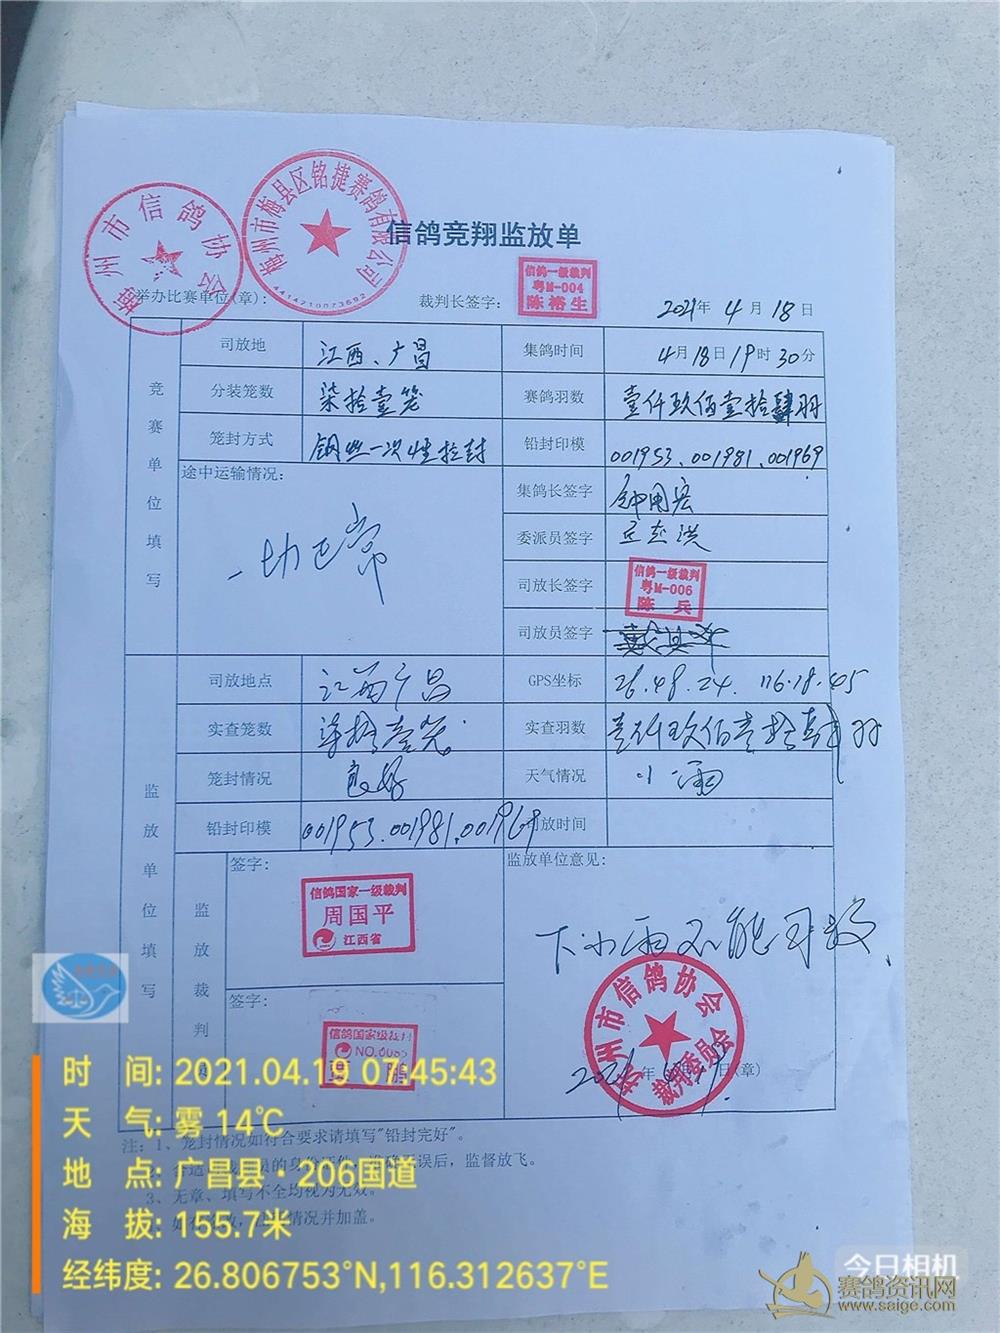 梅州市信鸽协会
梅州市梅县区铭捷赛鸽有限公司
4414710073692
信鸽竞翔监放单
举办比赛单位(章):
裁判长签字:
信鸽一级裁判
粤M-004
陈裕生
2021年 4月 18日
竞赛单位填写
司放地 江西、广昌 集鸽时间 4月18日19时30分
分装笼数 柒拾壹笼 赛鸽羽数 壹仟玖佰壹拾肆羽
笼封方式 钢丝一次性拉封 铅封印模 001953、001981、001969
途中运输情况: 一切正常
集鸽长签字
委派员签字
司放长签字
信鸽一级裁判
粤M-006
陈兵
司放员签字
监放单位填写
司放地点 江西广昌 GPS坐标 26.48.24. 116.18.45
实查笼数 柒拾壹笼 实查羽数 壹仟玖佰壹拾肆羽
笼封情况 良好 天气情况 小雨
铅封印模 001953.001981.001969 司放时间
监放裁判
签字:
信鸽国家一级裁判
周国平
江西省
签字:
信鸽国家级裁判
监放单位意见:
下小雨不能司放.
梅州市信鸽协会
裁判委员会
年 日(章)
注: 1、笼封情况如符合要求请填写"铅封完好"。
误后，监督放飞。
3、无章、填写不全均视为无效。
情况并加盖。
时 间: 2021.04.19 07:45:43
天 气: 雾 14℃
地 点: 广昌县·206国道
海 拔: 155.7米
经纬度: 26.806753°N,116.312637°E
今日相机
赛鸽资讯网
www.saige.com